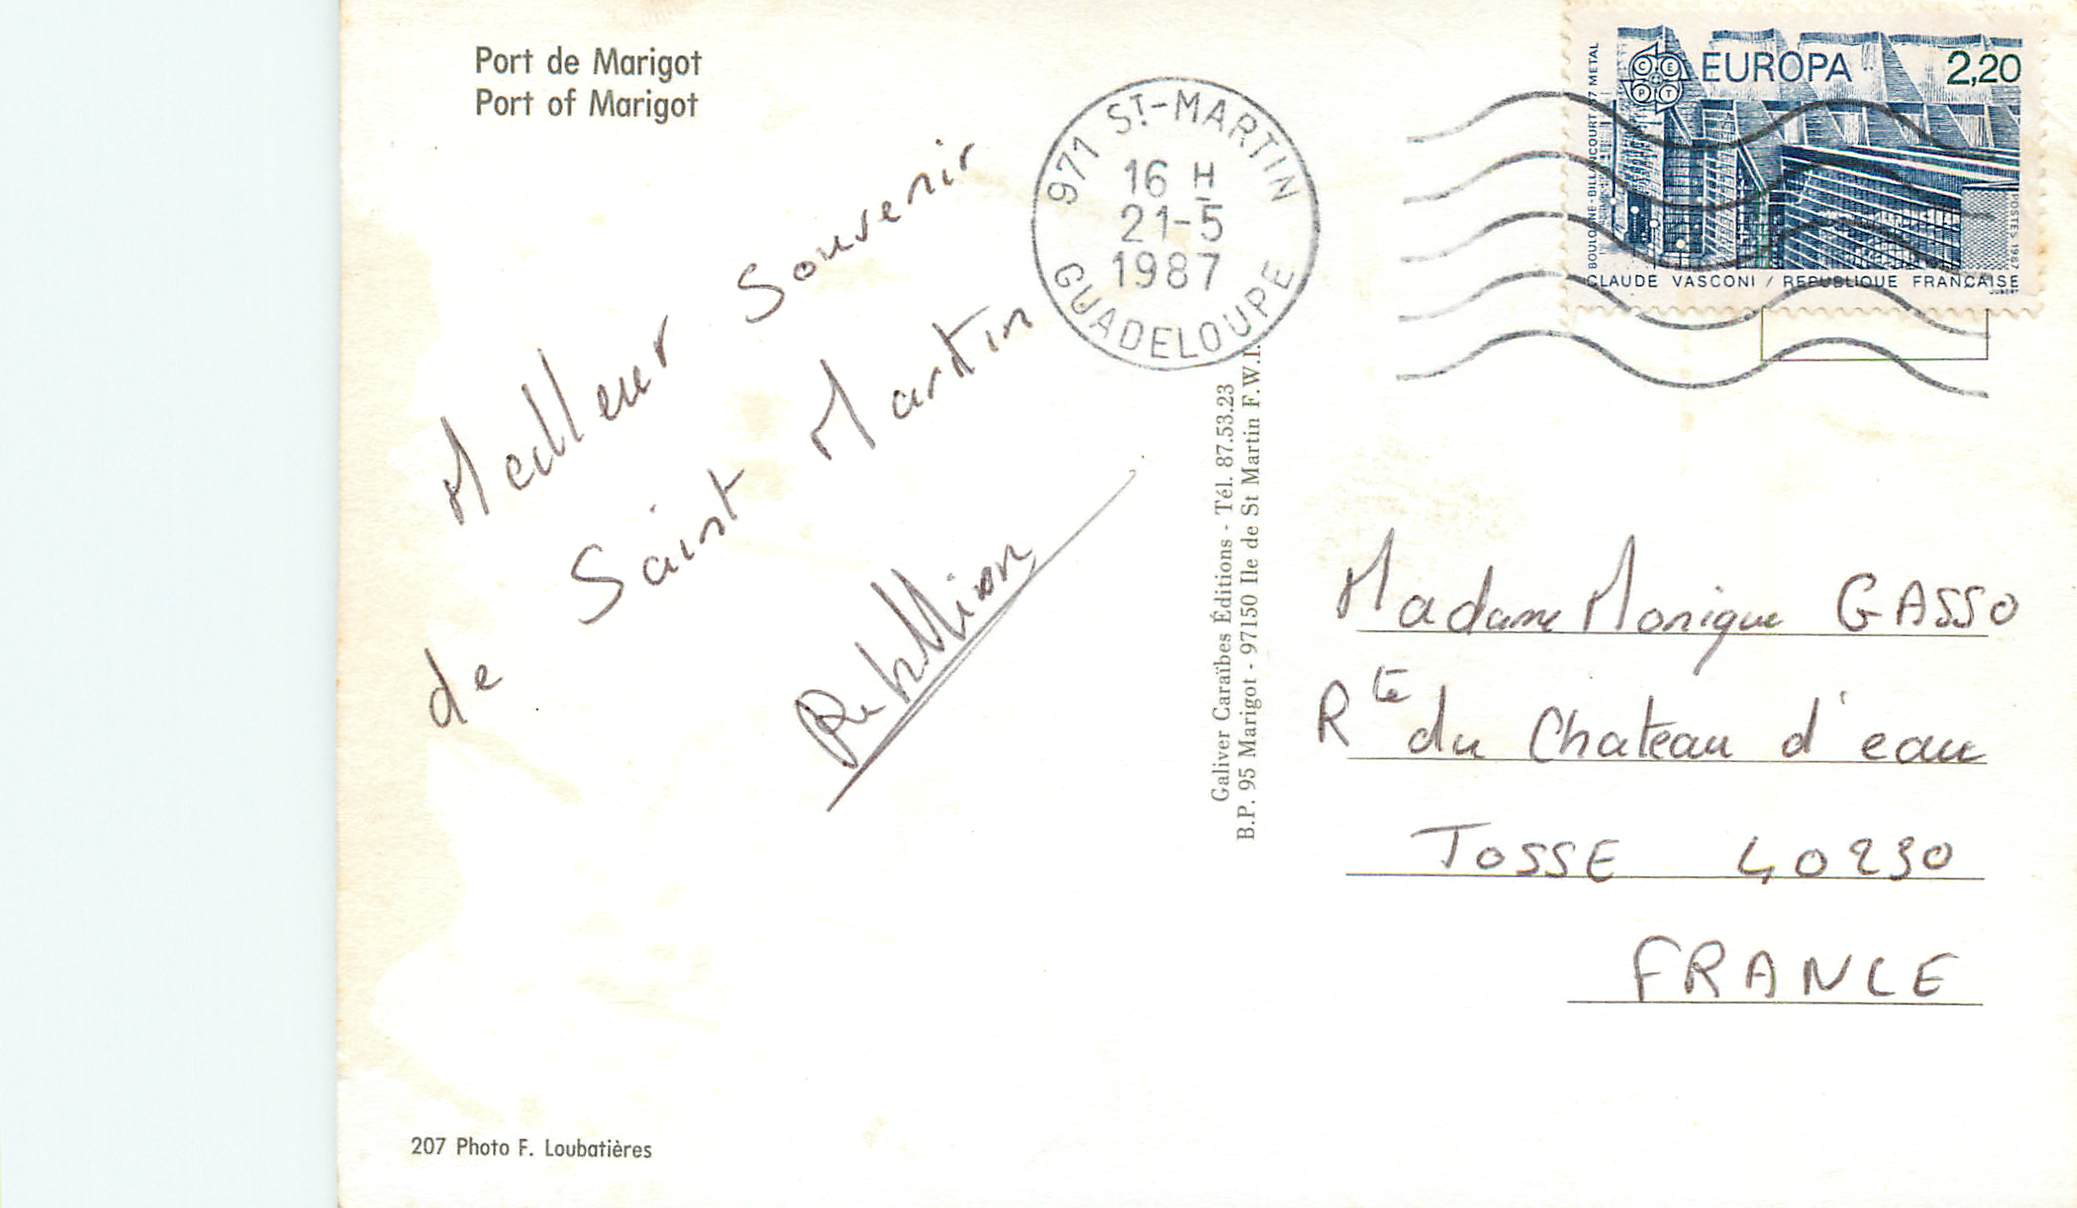 Port de Marigot
Port of Marigot
Meilleur Souvenir
de Saint Martin
971 ST-MARTIN
16 H
21-5
1987
GUADELOUPE
EUROPA 2,20
C E P T
BOULOGNE-BILLANCOURT 57 METAL
POSTES 1987
CLAUDE VASCONI / REPUBLIQUE FRANÇAISE
JUBERT
Galiver Caraïbes Éditions - Tél. 87.53.23
B.P. 95 Marigot - 97150 Ile de St Martin F.W.I.
Madame Monique GASSO
Rte du Chateau d'eau
TOSSE 40230
FRANCE
207 Photo F. Loubatières